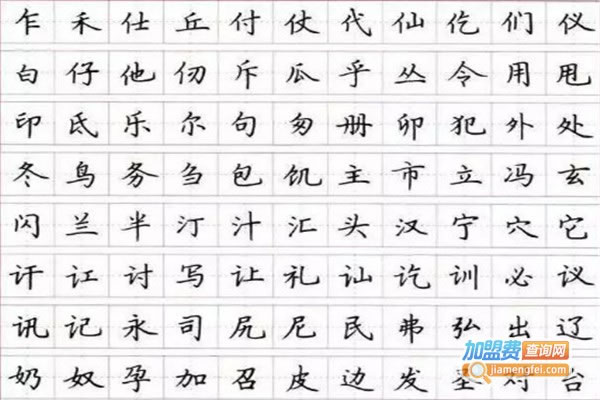 乍禾仕丘付仗代仙仡们仪
白仔他仞斥瓜乎丛令用甩
印氐乐尔句匆册卯犯外处
冬鸟务刍包饥主市立冯玄
闪兰半汀汁汇头汉宁穴它
讦讧讨写让礼讪讫训必议
讯记永司尻尼民弗弘出辽
奶奴孕加召皮边发圣对台
加盟费查询网
jiamengfei.com